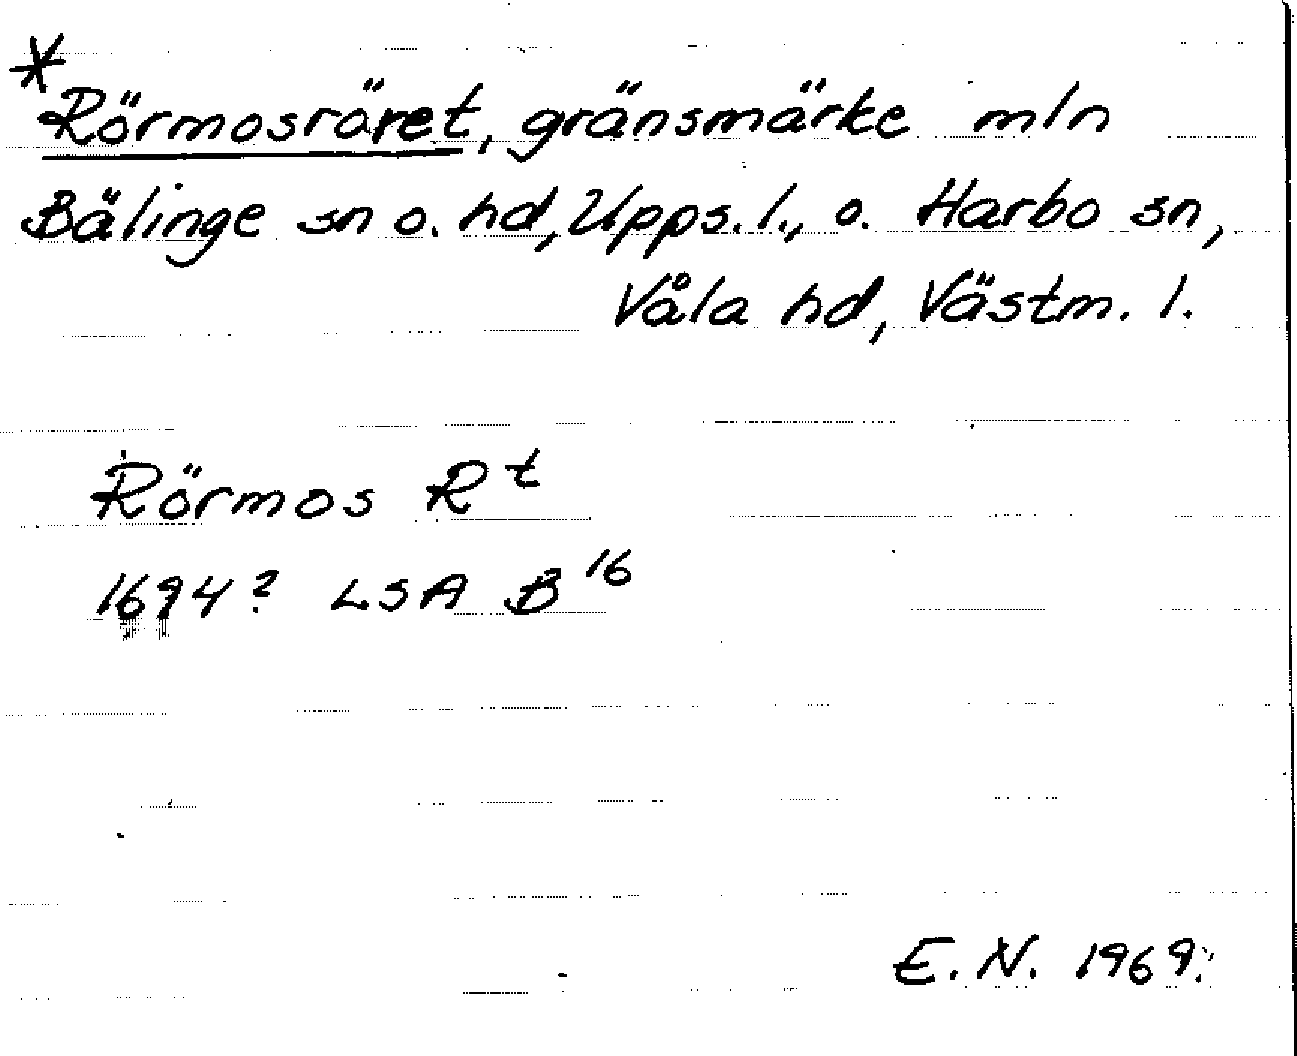 *
Rörmosröret, gränsmärke mln
Bälinge sn o. hd, Upps. l., o. Harbo sn,
Våla hd, Västm. l.
Rörmos Rt
1694? LSA B16
E.N. 1969.